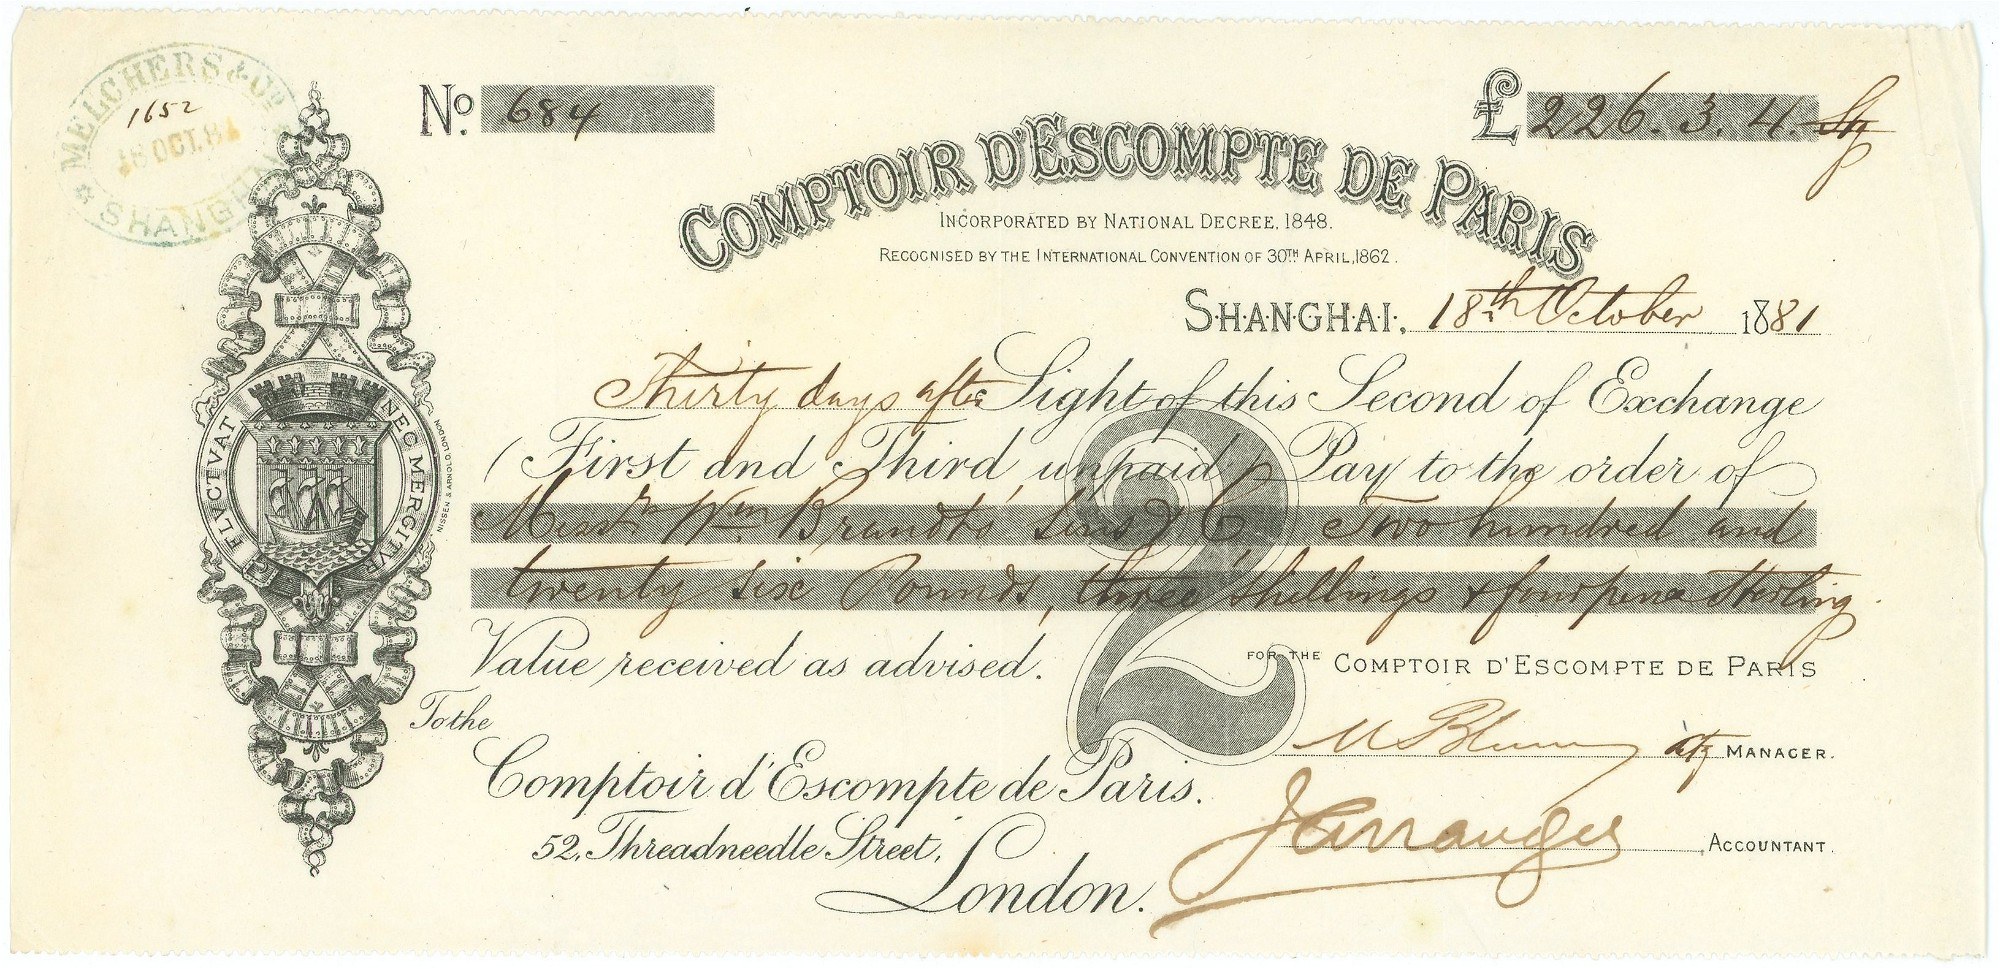 MELCHERS & Co
1652
18 OCT. 81
SHANGHAI
No. 684
£ 226. 3. 4. Stg
COMPTOIR D'ESCOMPTE DE PARIS
INCORPORATED BY NATIONAL DECREE, 1848.
RECOGNISED BY THE INTERNATIONAL CONVENTION OF 30TH APRIL, 1862.
SHANGHAI, 18th October 1881
Thirty days after Sight of this Second of Exchange
(First and Third unpaid) Pay to the order of
Messrs Wm Brandts' Sons & Co Two hundred and
twenty six Pounds, three shillings & fourpence Sterling.
Value received as advised.
FOR THE COMPTOIR D'ESCOMPTE DE PARIS
2
To the
Comptoir d'Escompte de Paris.
52, Threadneedle Street,
London.
MANAGER.
ACCOUNTANT.
FLVCTVAT NEC MERGITVR
NISSEN & ARNOLD, LONDON